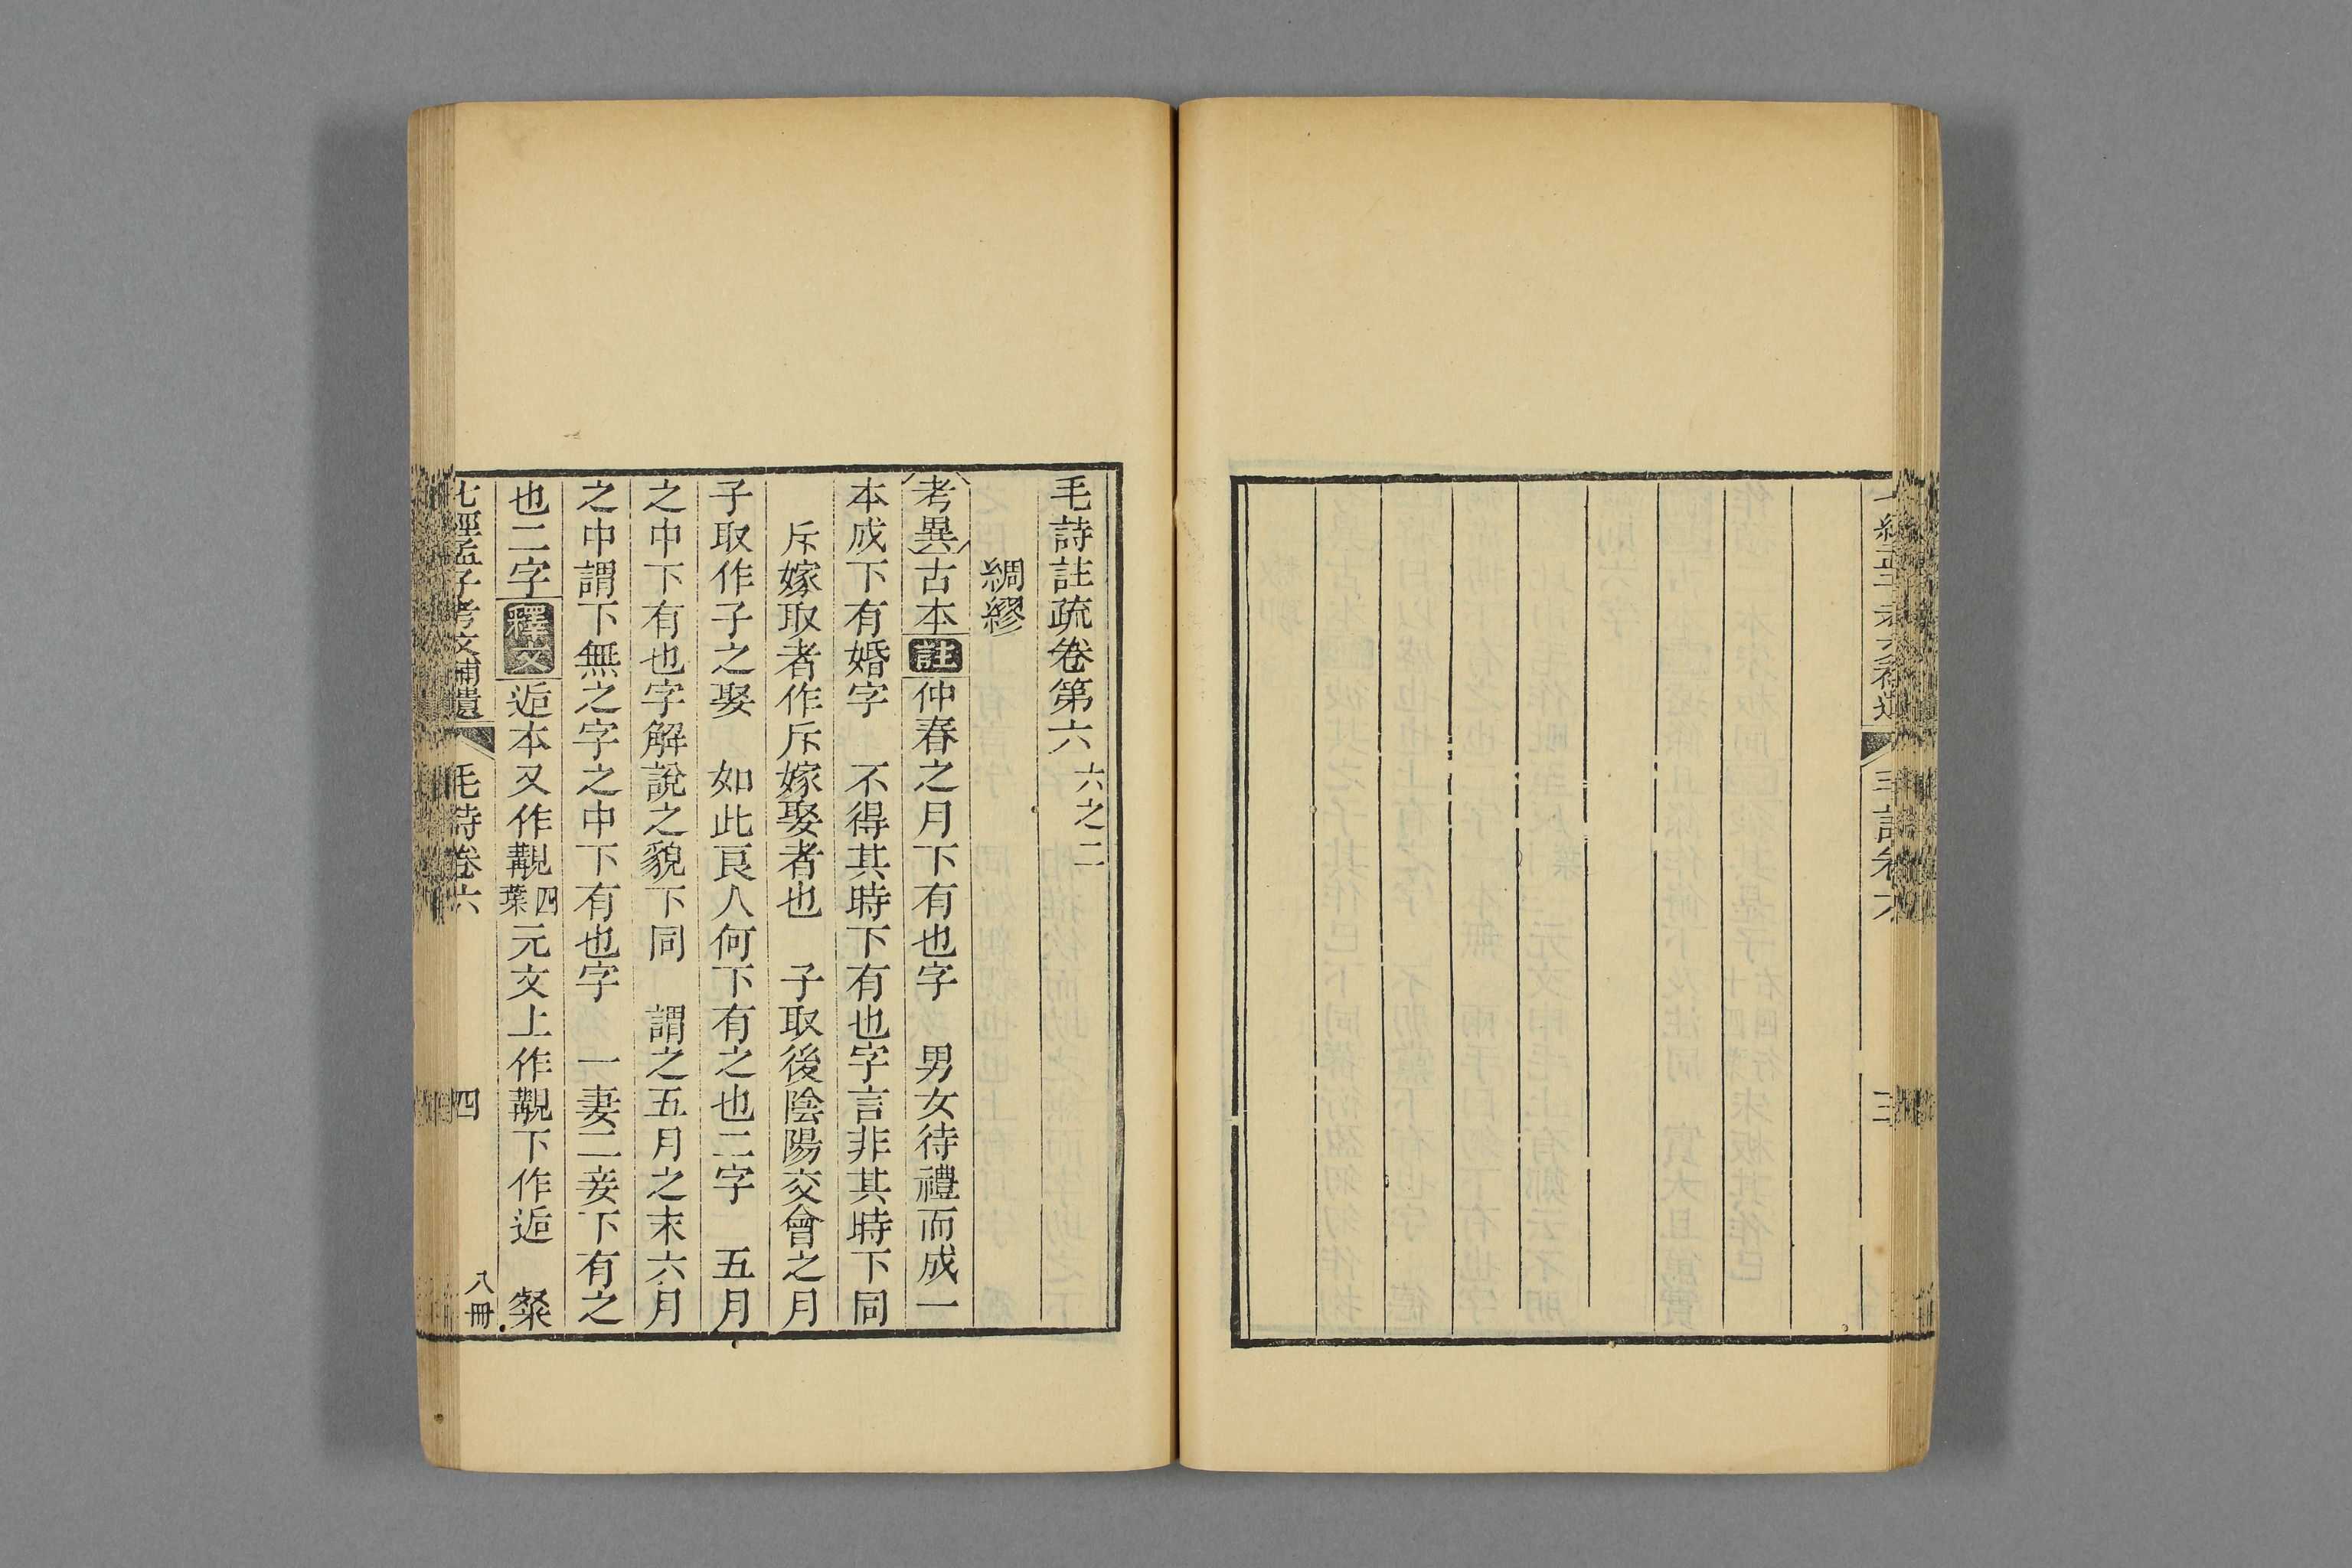 毛詩註疏卷第六 六之二
綢繆
考異古本註仲春之月下有也字 男女待禮而成一
本成下有婚字 不得其時下有也字言非其時下同
斥嫁取者作斥嫁娶者也 子取後陰陽交會之月
子取作子之娶 如此良人何下有之也二字 五月
之中下有也字解說之貌下同 謂之五月之末六月
之中謂下無之字之中下有也字 一妻二妾下有之
也二字釋文逅本又作覯四葉元文上作覯下作逅 粲
七經孟子考文補遺 毛詩卷六 四 八冊